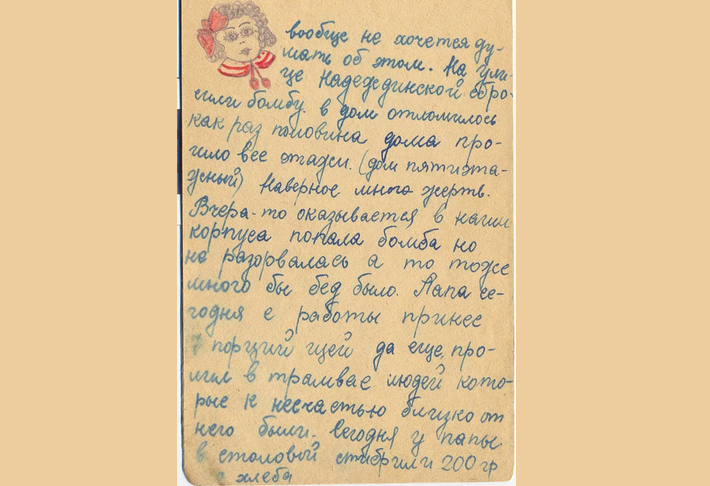 вообще не хочется ду-
мать об этом. На ули-
це Надеждинской сбро-
сили бомбу. в дом отломилось
как раз половина дома про-
било все этажи. (дом пятиэта-
жный) Наверное много жертв.
Вчера-то оказывается в наши
корпуса попала бомба но
не разорвалась а то тоже
много бы бед было. Папа се-
годня с работы принес
7 порций щей да еще, про-
лил в трамвае людей кото-
рые к несчастью близко от
него были. Сегодня у папы
в столовой стибрили 200 гр
хлеба